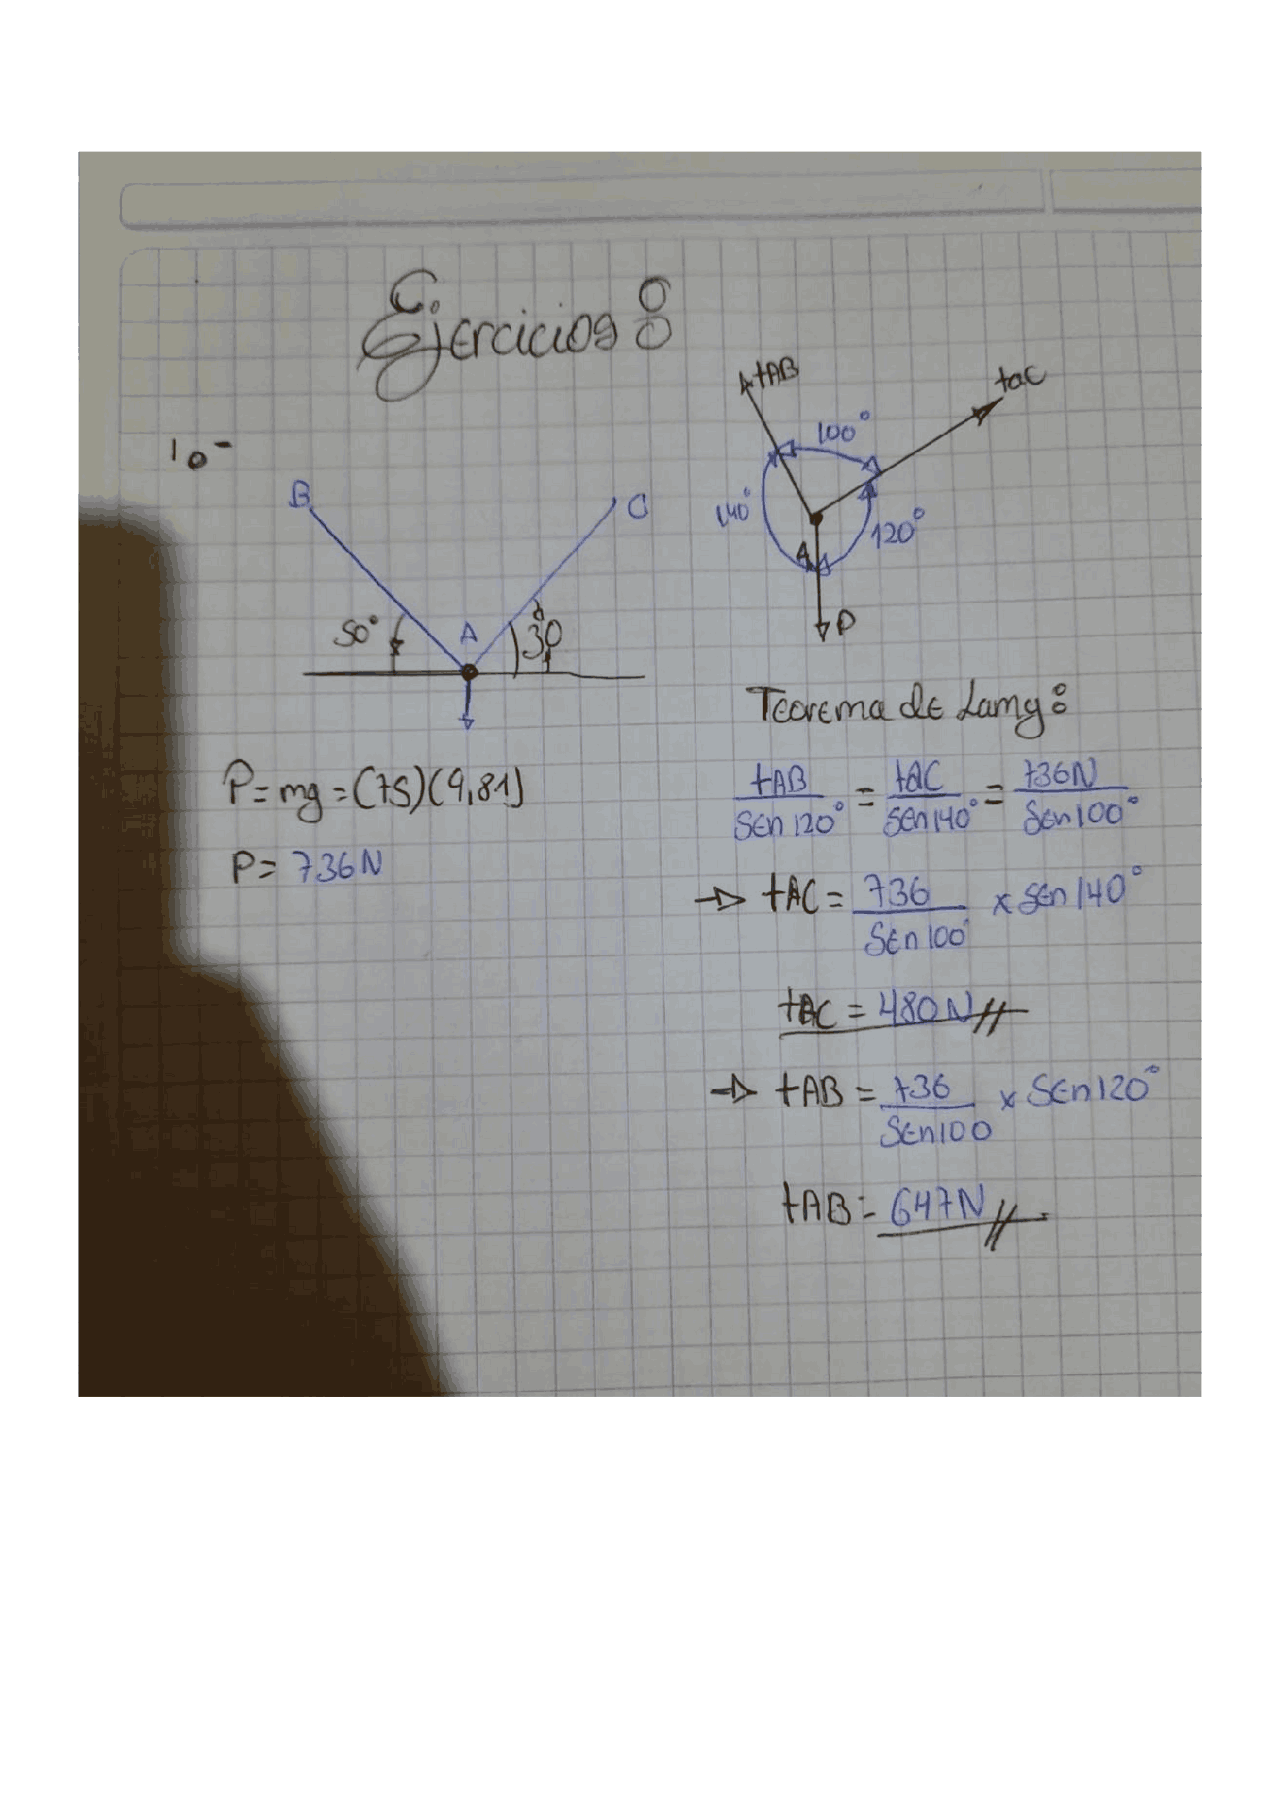 Ejercicios:
1.-
B
C
50°
A
30°
tAB
tac
100°
140°
120°
A
P
P = mg = (75)(9,81)
P = 736N
Teorema de Lamy:
tAB/Sen 120° = tac/Sen 140° = 736N/Sen 100°
→ tAC = 736/Sen 100° x Sen 140°
tAC = 480N//
→ tAB = 736/Sen 100 x Sen 120°
tAB = 647N//